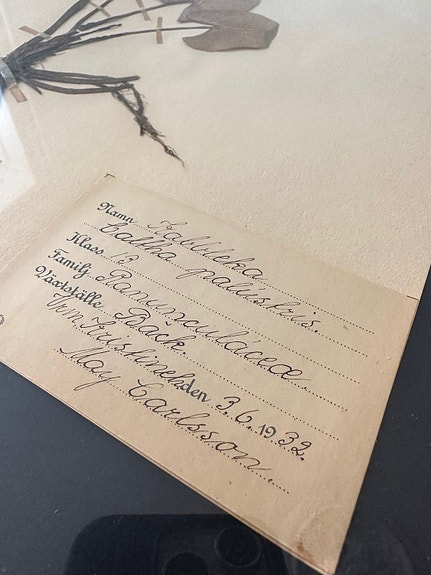 Namn Kabbleka
Caltha palustris.
Klass 13
Familj Ranunculaceæ.
Växtställe Bäck.
den 3.6.1932.
May Carlsson